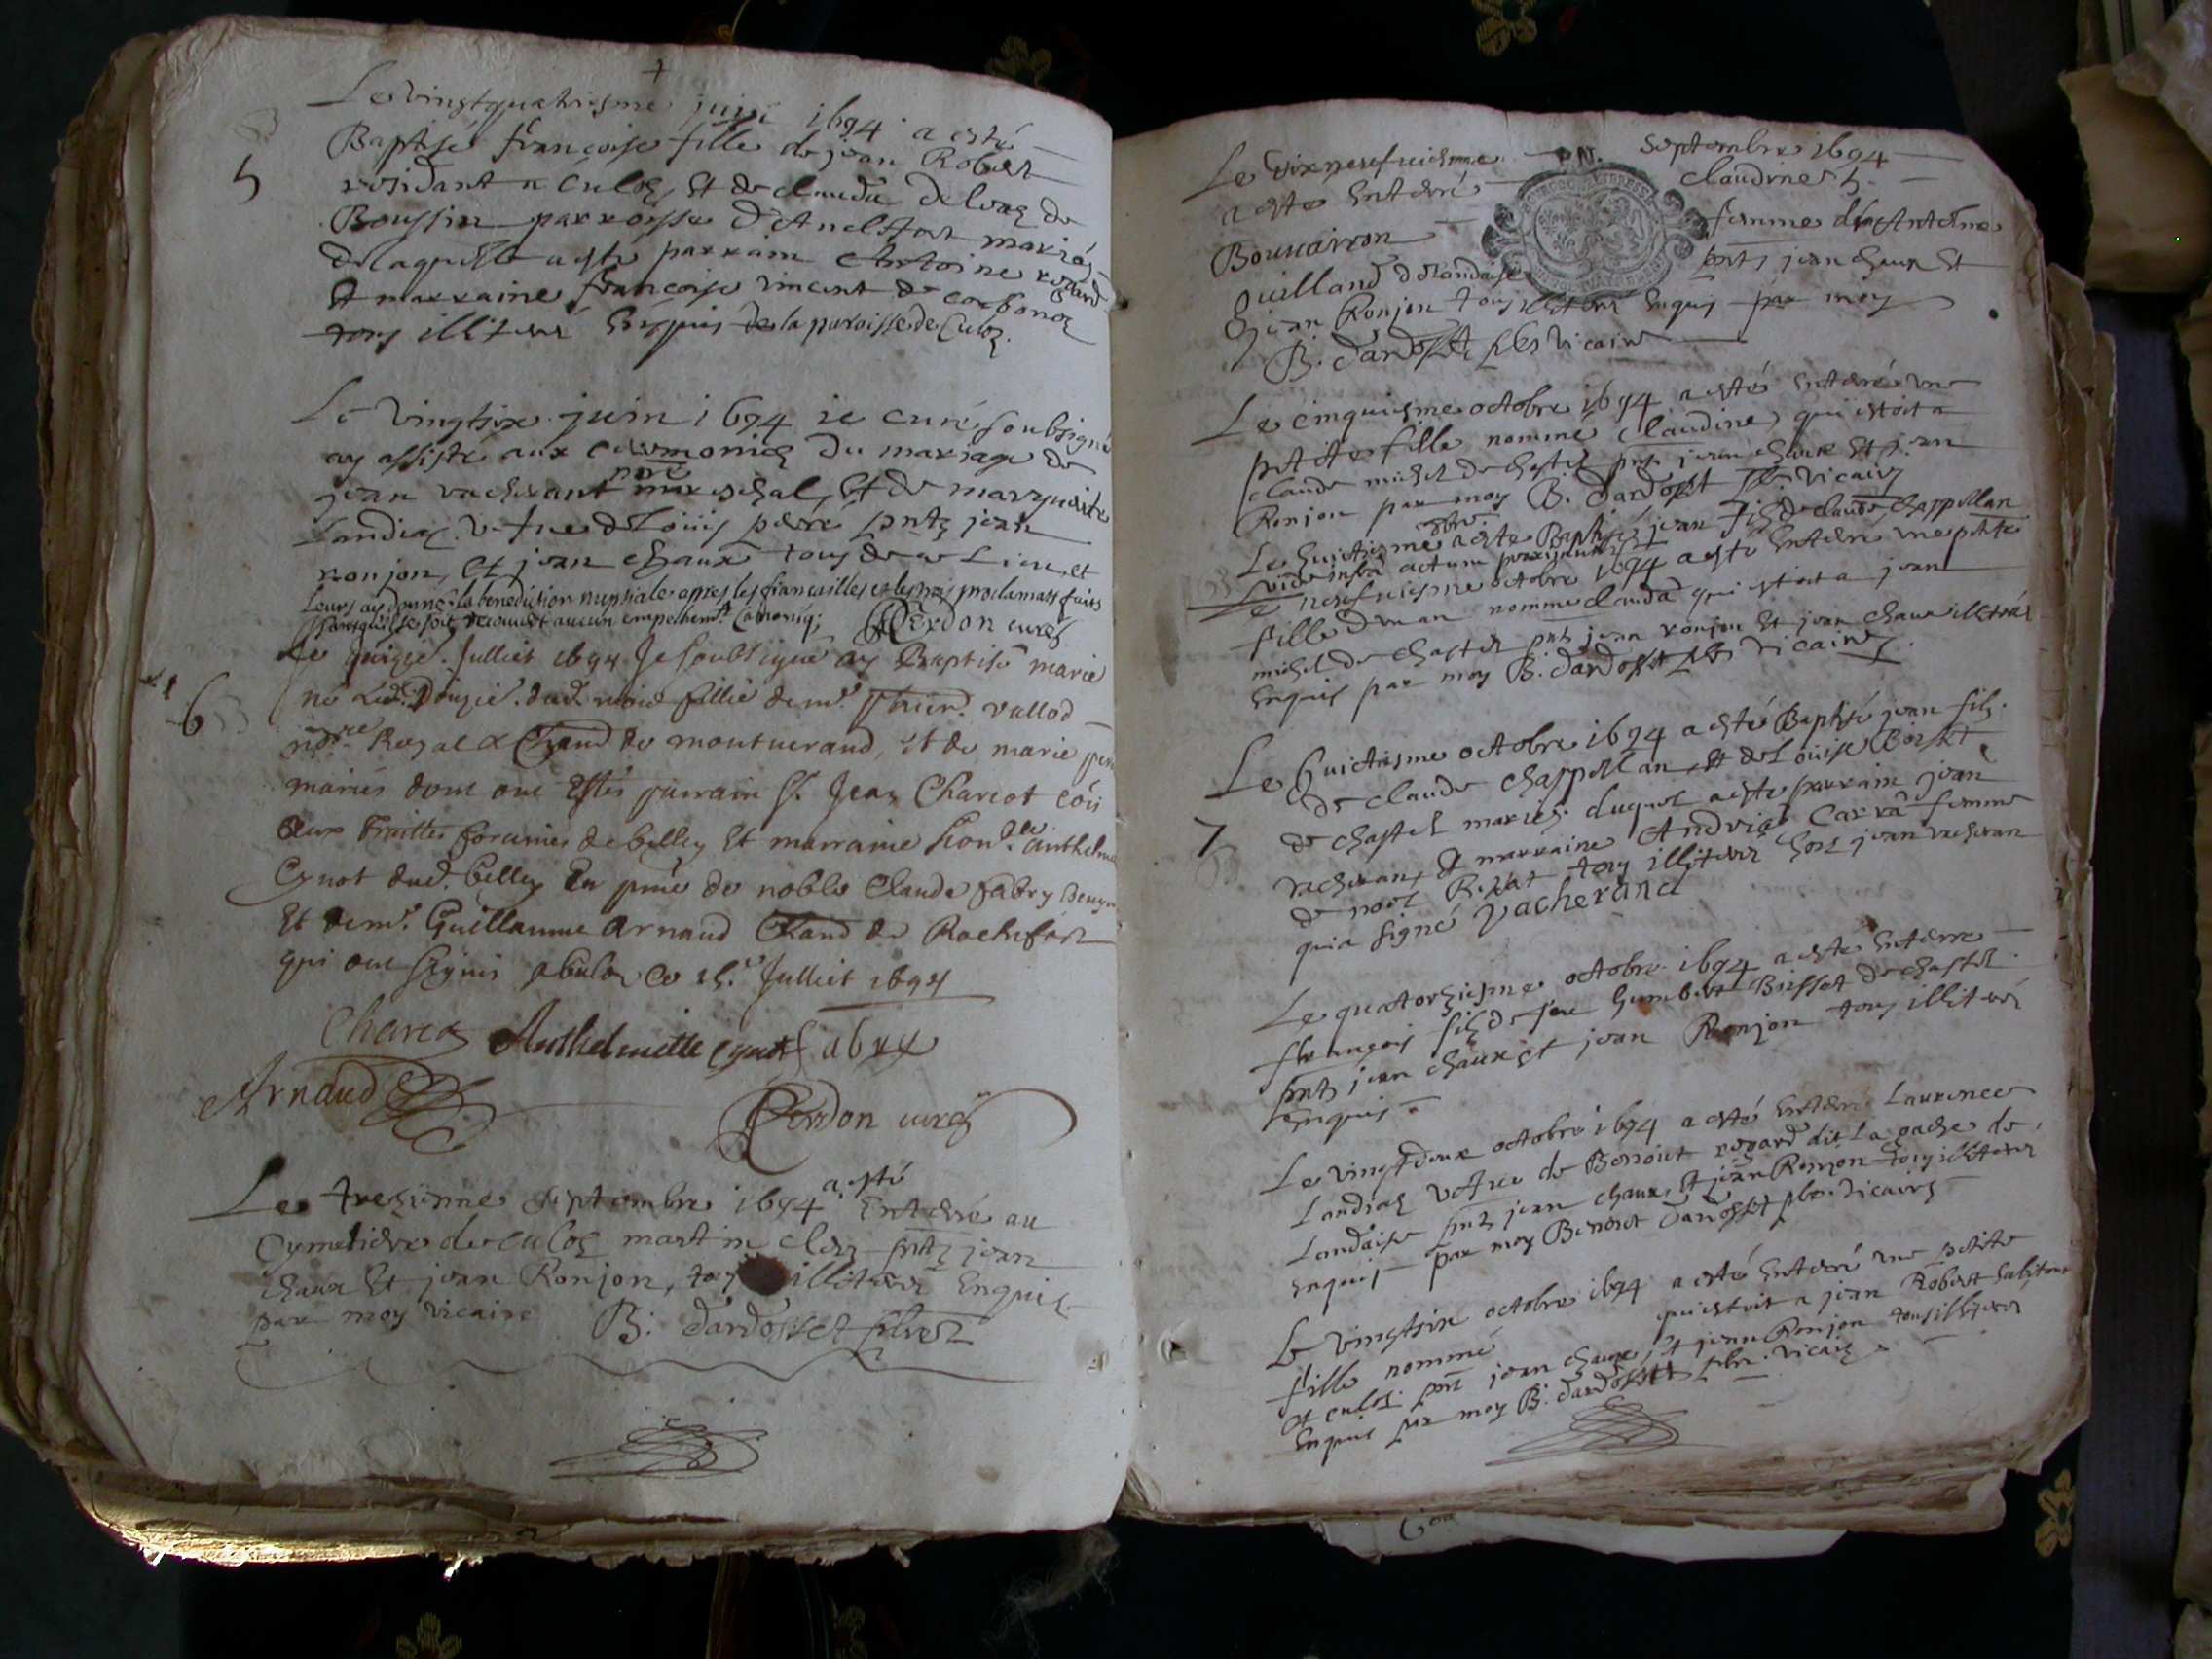 +
Le vingtquatriesme juin 1694 a esté
5
Baptisé françoise fille de jean Robert
residant a Culoz, et de clauda deloz de
Boussin parroisse d'Anelstor mariés
de laquelle a esté parrain Antoine
et marraine françoise vincent de
tous illiteréz Enquis de la paroisse de Culoz.
Le vingtsix juin 1694 ie curé soubsigné
ay assisté aux ceremonies du mariage de
jean vacherant mareschal, et de marguerite
Landiaz vefve de Loüis pntz jean
ronjon, et jean chaux tous de ce Lieu, et
Leurs ay donné la benediction nuptiale apres les fiançailles et les proclamats faits
aucun empechemt Canoniq; Perdon curé
Le quinze Julliet 1694 Je soubsigné ay Baptisé marie
6
né Led. Douzie. dud. mois fillie de mr. vallod
Royal & Chand de montueraud, et de marie
mariés dont ont Estés parrain Sr. Jean Charcot
aux Traittes foraines de belley Et marraine hon.
Cynot dud. belley En pnce de noble Claude fabry
Et de mr. Guillaume Arnaud Chand de Rochefort
qui ont signés a Culoz ce 15.e Julliet 1694
Charcot Anthelmette Cynot fabry
Arnaud
Perdon curé
Le trezienne septembre 1694 a esté Enterré au
Cymetiere de culoz martin clerz pntz jean
chaux Et jean Ronjon, tous illiteréz Enquis
par moy vicaire B. dardosset pbre
Le dixneufuiesme septembre 1694
a esté Enterré claudine
Bouuairon femme d'Antoine
Guilland de Landaise pntz jean chaux Et
jean Ronjon tous illiteréz Enquis par moy
B. dardosset pbre vicaire
Le cinquiesme octobre 1694 a esté Enterré une
petite fille nommé claudine, qui estoit a
claude michel de chastel pntz jean chaux Et jean
Ronjon par moy B. dardosset pbr. vicaire
Le huictiesme 8bre a esté Baptisé jean filz de claude chappellan
vide infra actum
Le neufuiesme octobre 1694 a esté Enterré une petite
fille nommé clauda qui estoit a jean
michel de chastel pntz jean ronjon Et jean chaux illiteréz
Enquis par moy B. dardosset pbr vicaire
Le huictiesme octobre 1694 a esté Baptisé jean filz
de claude chappellan, et de Loüise
7
de chastel mariés duquel a esté parrain jean
vacheran, et marraine Andriaz Carra femme
de noel tous illiteréz hors jean vacheran
qui a signé Vacherand
Le quatorziesme octobre 1694 a esté Enterré
françois filz de feu humbert Brisset de chastel
pntz jean chaux Et jean Ronjon tous illiteréz
Enquis
Le vingtdeux octobre 1694 a esté Enterré Laurence
Landiaz vefve de Benoit rogard dit La gache de
Landaise pntz jean chaux, Et jean Ronjon tous illiteréz
Enquis par moy Benoit dardosset pbr. vicaire
Le vingtsix octobre 1694 a esté Enterré une petite
fille nommé qui estoit a jean Robert habitant
a culoz pnt jean chaux, et jean Ronjon tous illiteréz
Enquis par moy B. dardosset pbr. vicaire